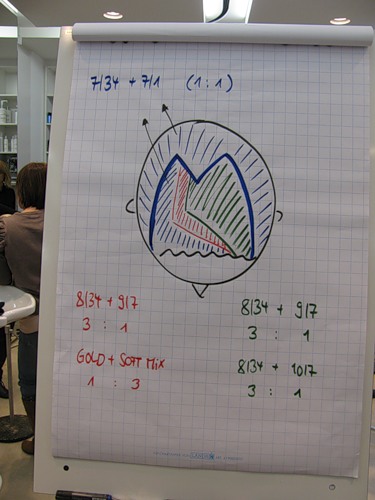 7/34 + 7/1 (1:1)
8/34 + 9/7
3 : 1
GOLD + SOFT MIX
1 : 3
8/34 + 9/7
3 : 1
8/34 + 10/7
3 : 1